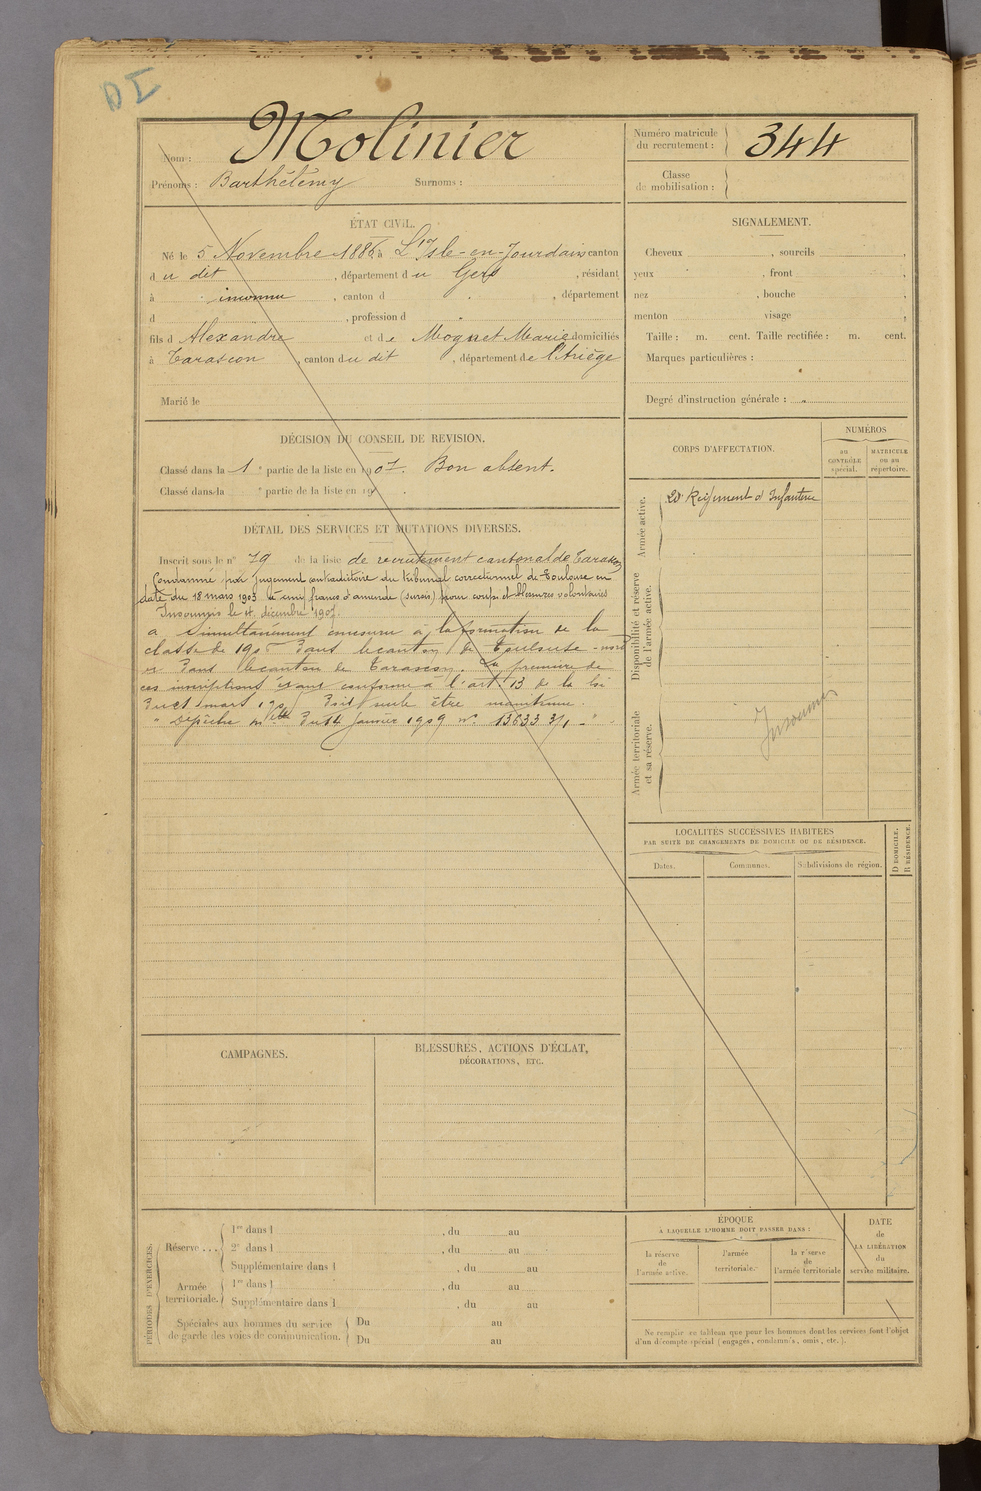 DI
Nom : Molinier
Prénoms : Barthélémy Surnoms :
Numéro matricule du recrutement : 344
Classe de mobilisation :
ÉTAT CIVIL.
Né le 5 Novembre 1886, à L'Isle-en-Jourdain canton
du dit, département du Gers, résidant
à inconnu, canton d , département
d , profession d
fils d Alexandre et de Moguet Marie domiciliés
à Tarascon, canton du dit, département de l'Ariège
Marié le
SIGNALEMENT.
Cheveux , sourcils ,
yeux , front ,
nez , bouche ,
menton visage ,
Taille : m. cent. Taille rectifiée : m. cent.
Marques particulières :
Degré d'instruction générale :
DÉCISION DU CONSEIL DE REVISION.
Classé dans la 1e partie de la liste en 1907. Bon absent.
Classé dans la e partie de la liste en 19 .
DÉTAIL DES SERVICES ET MUTATIONS DIVERSES.
Inscrit sous le n° 79 de la liste de recrutement cantonal de Tarascon
Condamné par jugement contradictoire du tribunal correctionnel de Toulouse en
date du 18 mars 1903 à cinq francs d'amende (sursis) pour coups et blessures volontaires
Insoumis le 4 décembre 1907.
a simultanément concouru à la formation de la
classe de 1906 dans le canton de Toulouse-nord
et dans le canton de Tarascon. La première de
ces inscriptions étant conforme à l'art. 13 de la loi
du 21 mars 1905 doit seule être maintenue.
Dépêche mlle du 14 Janvier 1909 n° 13633 3/1
CORPS D'AFFECTATION.
NUMÉROS
au CONTRÔLE spécial.
MATRICULE ou au répertoire.
Armée active.
20e Régiment d'Infanterie
Disponibilité et réserve de l'armée active.
Armée territoriale et sa réserve.
Insoumis
LOCALITÉS SUCCESSIVES HABITÉES
PAR SUITE DE CHANGEMENTS DE DOMICILE OU DE RÉSIDENCE.
Dates. Communes. Subdivisions de région.
D DOMICILE.
R RÉSIDENCE.
CAMPAGNES.
BLESSURES, ACTIONS D'ÉCLAT,
DÉCORATIONS, ETC.
PÉRIODES D'EXERCICES.
Réserve . . . 1re dans l , du au
2e dans l , du au
Supplémentaire dans l , du au
Armée territoriale. 1re dans l , du au
Supplémentaire dans l , du au
Spéciales aux hommes du service Du au
de garde des voies de communication. Du au
ÉPOQUE
À LAQUELLE L'HOMME DOIT PASSER DANS :
la réserve de l'armée active.
l'armée territoriale.
la réserve de l'armée territoriale
DATE
de
LA LIBÉRATION
du
service militaire.
Ne remplir ce tableau que pour les hommes dont les services font l'objet
d'un décompte spécial (engagés, condamnés, omis, etc.).